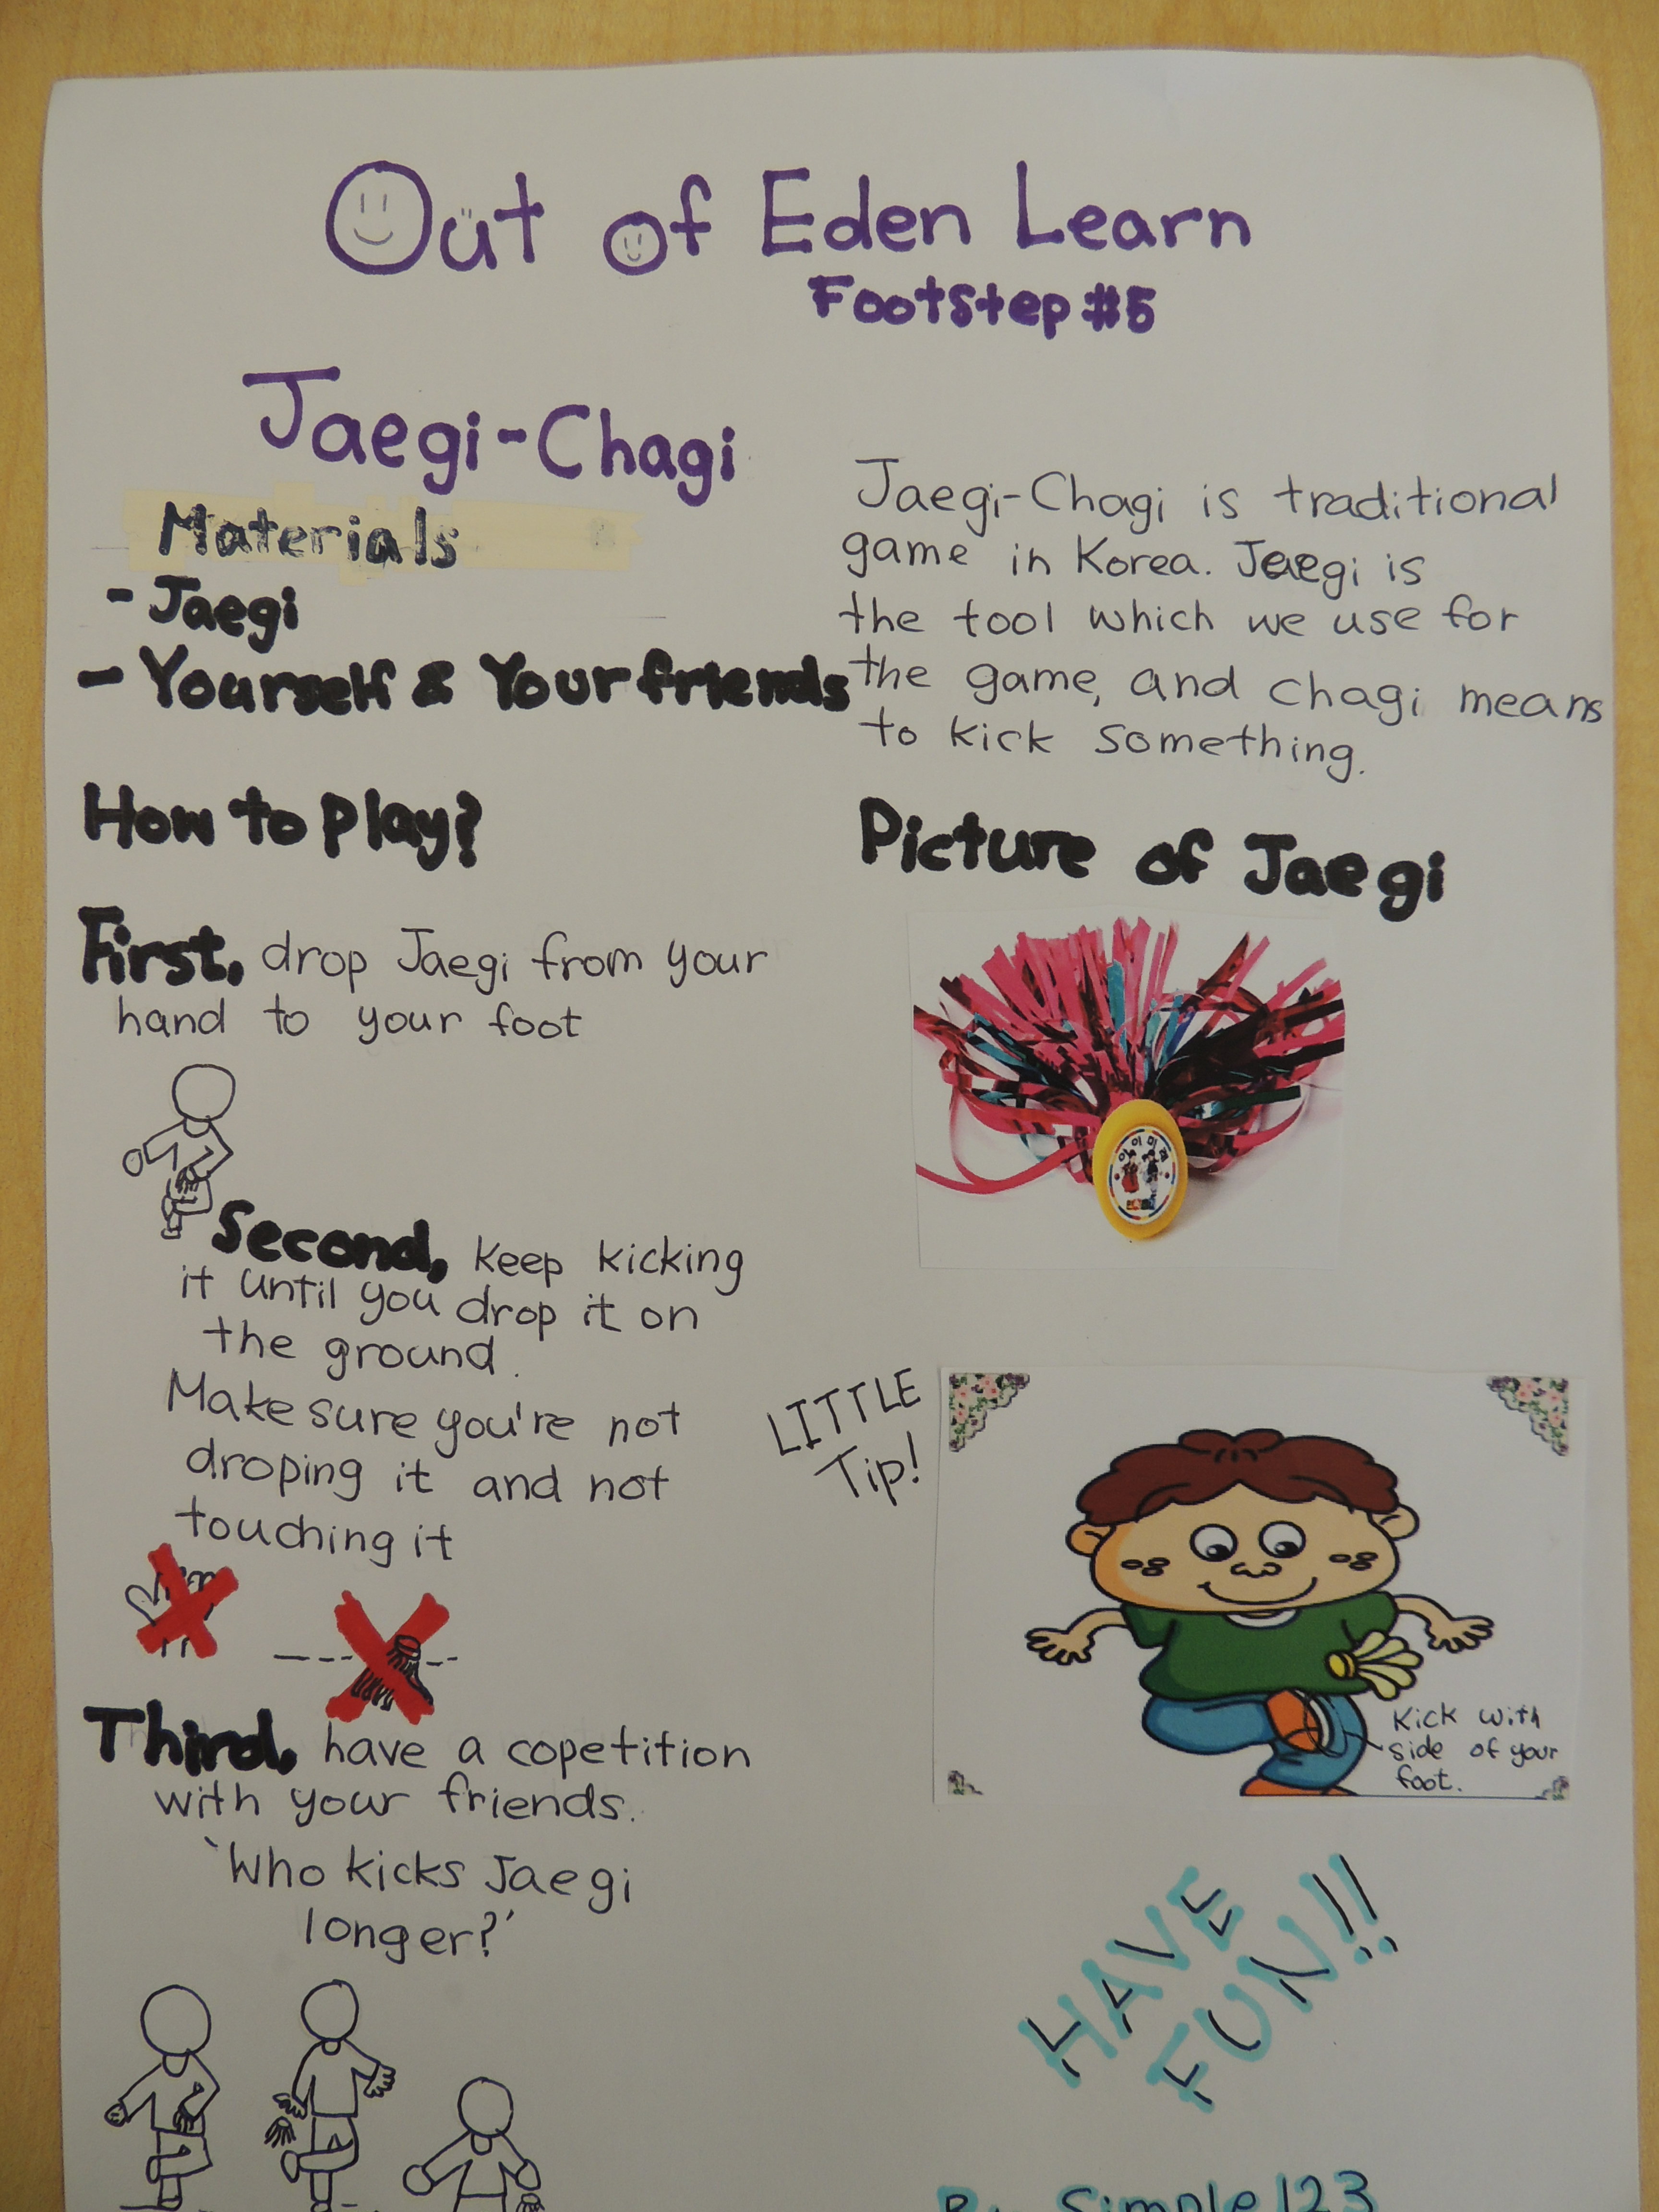 Out of Eden Learn
Footstep #5
Jaegi-Chagi
Materials
- Jaegi
- Yourself & Your friends
Jaegi-Chagi is traditional
game in Korea. Jaegi is
the tool which we use for
the game, and chagi means
to kick something.
How to play?
First, drop Jaegi from your
hand to your foot
Second, keep kicking
it until you drop it on
the ground.
Make sure you're not
droping it and not
touching it
Third, have a copetition
with your friends.
'Who kicks Jaegi
longer?'
Picture of Jaegi
LITTLE
Tip!
Kick with
side of your
foot.
HAVE
FUN!!
By Simple123